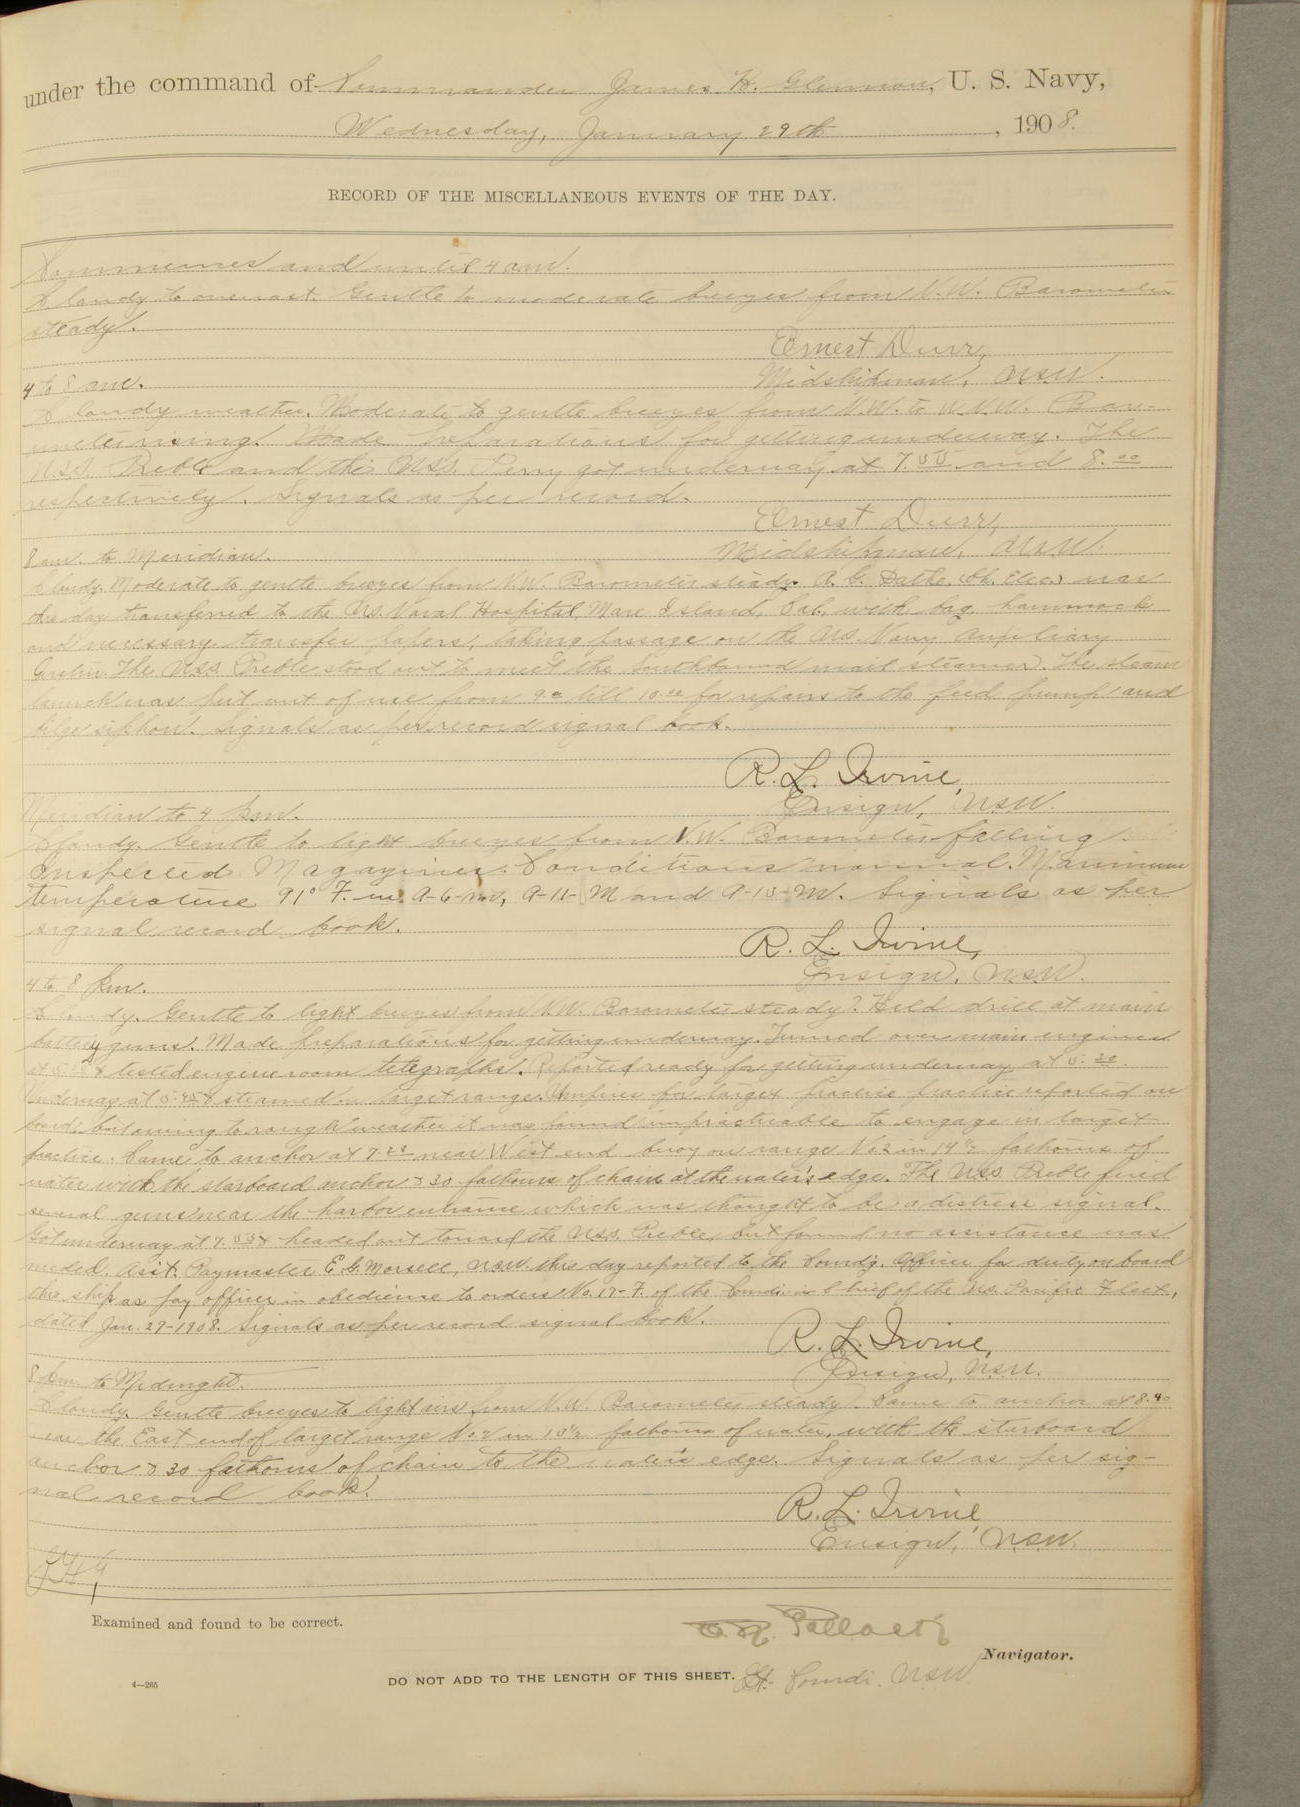 under the command of Commander James H. Glennon, U. S. Navy,
Wednesday, January 29th, 1908.
RECORD OF THE MISCELLANEOUS EVENTS OF THE DAY.
Commences and until 4 am.
Cloudy to overcast. Gentle to moderate breezes from N.W. Barometer
steady.
Ernest Durr,
Midshipman, U.S.N.
4 to 8 am.
Cloudy weather. Moderate to gentle breezes from N.W. to W.N.W. Bar-
ometer rising. Made preparations for getting underway. The
U.S.S. Preble and the U.S.S. Perry got underway at 7.55 and 8.00
respectively. Signals as per record.
Ernest Durr,
Midshipman, U.S.N.
8 am. to Meridian.
Cloudy. Moderate to gentle breezes from N.W. Barometer steady. R. G. Dathe, Ch. Elec. was
this day transferred to the U.S. Naval Hospital, Mare Island, Cal, with bag, hammock
and necessary transfer papers, taking passage on the U.S. Navy Auxiliary
The U.S.S. Preble stood out to meet the southbound mail steamer. The steam
launch was put out of use from till for repairs to the feed pump and
bilge siphon. Signals as per record signal book.
R. L. Irvine,
Ensign, U.S.N.
Meridian to 4 pm.
Cloudy. Gentle to light breezes from N.W. Barometer falling.
Inspected Magazines. Conditions normal. Maximum
temperature 91° F. in A-6-M, A-11-M and A-13-M. Signals as per
signal record book.
R. L. Irvine,
Ensign, U.S.N.
4 to 8 pm.
Cloudy. Gentle to light breezes from N.W. Barometer steady. Held drill at main
battery guns. Made preparations for getting underway. Turned over main engines
at & tested engine room telegraphs. Reported ready for getting underway at 5:30.
Underway at 5:45 & steamed in target range. Umpires for target practice practice reported on
board, but owing to rough weather it was found impracticable to engage in target
practice. Came to anchor at near West end buoy on range No 2 in 14½ fathoms of
water with the starboard anchor & 30 fathoms of chain at the water's edge. The U.S.S. Preble fired
several guns near the harbor entrance which was thought to be a distress signal.
Got underway at 7.55 & headed out toward the U.S.S. Preble, but found no assistance was
needed. Asst. Paymaster E. C. Morsell, U.S.N. this day reported to the Comdg. Officer for duty on board
this ship as pay officer in obedience to orders No. 17-F. of the Comdr in Chief of the U.S. Pacific Fleet,
dated Jan. 27-1908. Signals as per record signal book.
R. L. Irvine,
Ensign, U.S.N.
8 pm. to Midnight.
Cloudy. Gentle breezes to light airs from N.W. Barometer steady. Came to anchor at 8.40
near the East end of target range No. 2 in 13½ fathoms of water, with the starboard
anchor & 30 fathoms of chain to the water's edge. Signals as per sig-
nal record book.
R. L. Irvine
Ensign, U.S.N.
J.H.G.
Examined and found to be correct.
E. R. Pollock
Navigator.
DO NOT ADD TO THE LENGTH OF THIS SHEET.
Lt. Comdr. U.S.N.
4—265